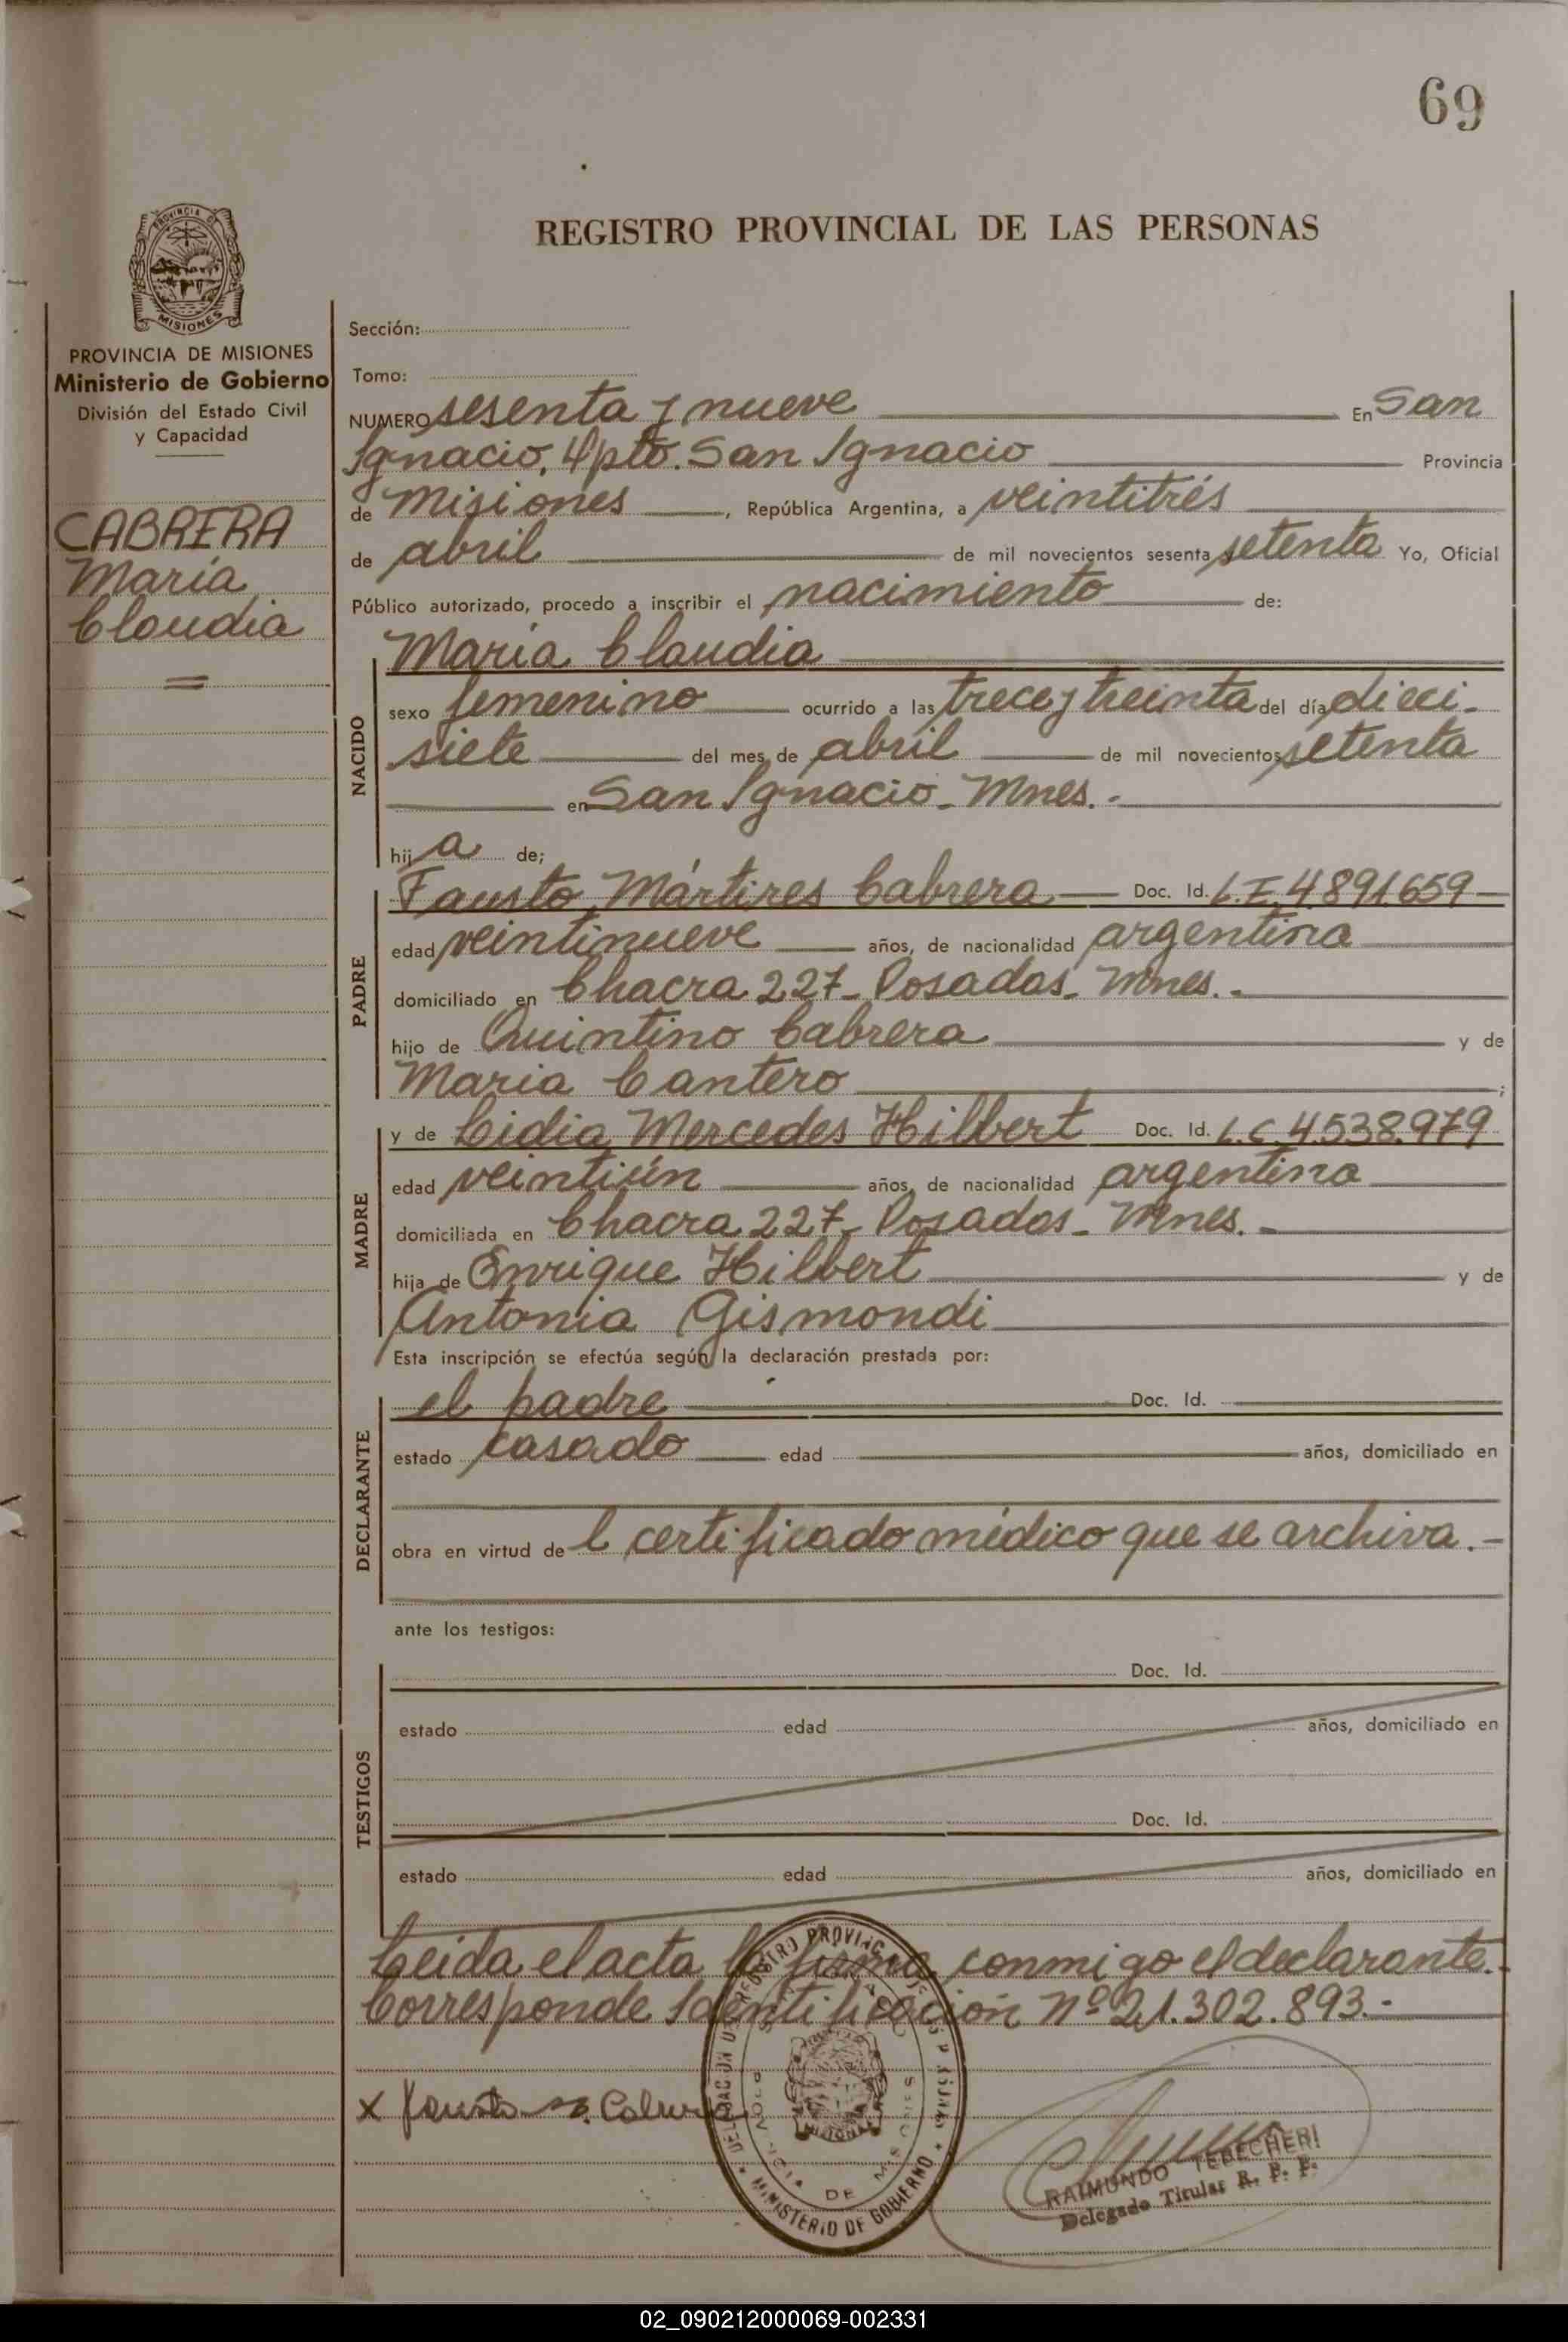 69
REGISTRO PROVINCIAL DE LAS PERSONAS
PROVINCIA DE
MISIONES
PROVINCIA DE MISIONES
Ministerio de Gobierno
División del Estado Civil
y Capacidad
CABRERA
María
Claudia
Sección:
Tomo:
NUMERO sesenta y nueve En San
Ignacio, Dpto. San Ignacio Provincia
de Misiones, República Argentina, a veintitrés
de abril de mil novecientos sesenta y setenta Yo, Oficial
Público autorizado, procedo a inscribir el nacimiento de:
NACIDO
María Claudia
sexo femenino ocurrido a las trece y treinta del día dieci-
siete del mes de abril de mil novecientos setenta
en San Ignacio - Mnes. -
hija de;
PADRE
Fausto Mártires Cabrera Doc. Id. L.E. 4891659
edad veintinueve años, de nacionalidad argentina
domiciliado en Chacra 227 - Posadas - Mnes. -
hijo de Quintino Cabrera y de
Maria Cantero ;
MADRE
y de Lidia Mercedes Hilbert Doc. Id. L.C. 4.538.979
edad veintiún años, de nacionalidad argentina
domiciliada en Chacra 227 - Posadas - Mnes. -
hija de Enrique Hilbert y de
Antonia Gismondi
Esta inscripción se efectúa según la declaración prestada por:
DECLARANTE
el padre Doc. Id.
estado casado edad años, domiciliado en
obra en virtud del certificado médico que se archiva. -
ante los testigos:
TESTIGOS
Doc. Id.
estado edad años, domiciliado en
Doc. Id.
estado edad años, domiciliado en
Leida el acta la firma conmigo el declarante.
Corresponde Identificación Nº 21.302.893. -
x Fausto M. Cabrera
MINISTERIO DE GOBIERNO
RAIMUNDO TEDECHERI
Delegado Titular R. P. P.
02_090212000069-002331